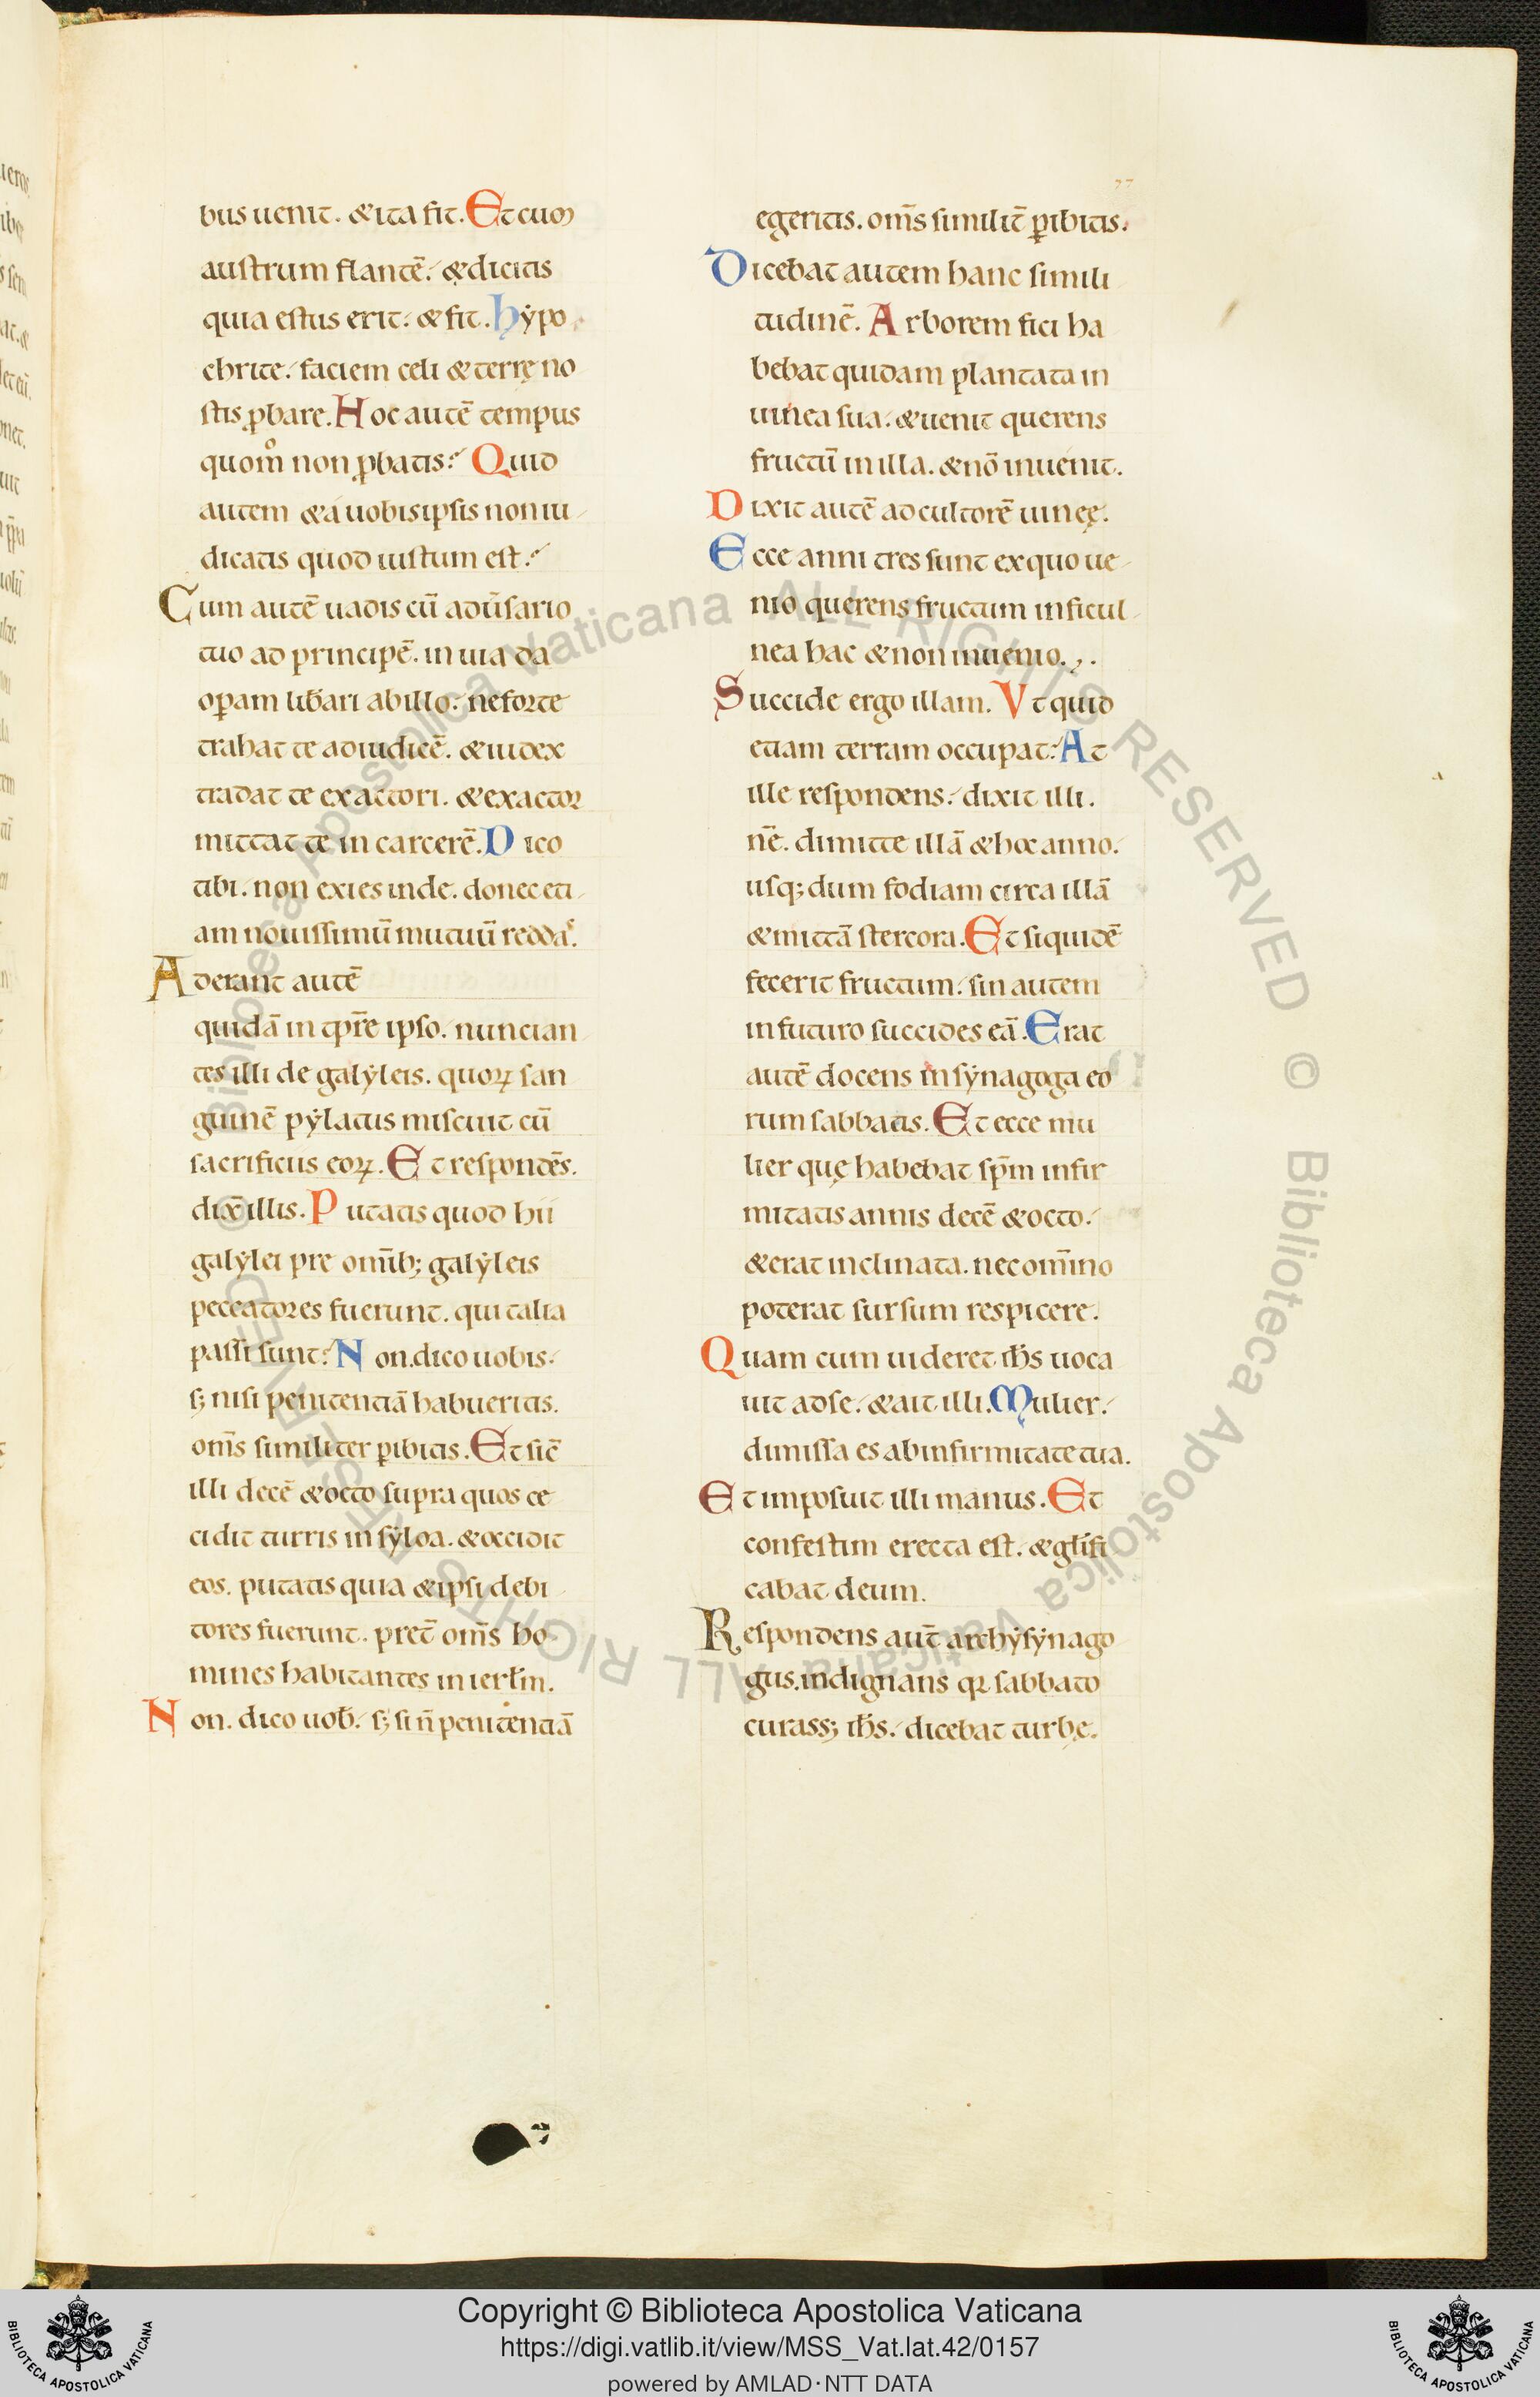 77
bus uenit. & ita fit. Et cum
austrum flantē. & dicitis
quia estus erit. & fit. hẏpo
chrite. faciem celi & terrę no
stis ꝓbare. Hoc autē tempus
quom̊ non ꝓbatis? Quid
autem & a uobis ipsis non iu
dicatis quod iustum est?
Cum autē uadis cū adu̅sario
tuo ad principē. in uia da
oꝑam lib̅ari ab illo. ne forte
trahat te ad iudicē. & iudex
tradat te exactori. & exactor
mittat te in carcerē. Dico
tibi. non exies inde. donec eti
am nouissimū mutuū reddas.
Aderant autē
quidā in tp̅re ipso. nuncian
tes illi de galẏleis. quoꝝ san
guinē pẏlatus miscuit cū
sacrificiis eoꝝ. Et respondēs.
dix̅ illis. Putatis quod hii
galẏlei pre om̅ib; galẏleis
peccatores fuerunt. qui talia
passi sunt? Non. dico uobis.
s; nisi penitentiā habueritis.
om̅s similiter ꝑibitis. Et sic̅
illi decē & octo supra quos ce
cidit turris in sẏloa. & occidit
eos. putatis quia & ipsi debi
tores fuerunt. pret̅ om̅s ho
mines habitantes in ierl̅m.
Non. dico uob̅. s; si n̅ penitentiā
egeritis. om̅s similit̅ ꝑibitis.
Dicebat autem hanc simili
tudinē. Arborem fici ha
bebat quidam plantata in
uinea sua. & uenit querens
fructū in illa. & nō inuenit.
Dixit autē ad cultorē uineę.
Ecce anni tres sunt ex quo ue
nio querens fructum in ficul
nea hac & non inuenio.
Succide ergo illam. Vt quid
etiam terram occupat? At
ille respondens. dixit illi.
n̅e. dimitte illā & hoc anno.
usq; dum fodiam circa illā
& mittā stercora. Et siquidē
fecerit fructum. sin autem
in futuro succides eā. Erat
autē docens in sẏnagoga eo
rum sabbatis. Et ecce mu
lier quę habebat sp̅m infir
mitatis annis decē & octo.
& erat inclinata. nec om̅ino
poterat sursum respicere.
Quam cum uideret ih̅s uoca
uit ad se. & ait illi. Mulier.
dimissa es ab infirmitate tua.
Et imposuit illi manus. Et
confestim erecta est. & gl̅ifi
cabat deum.
Respondens aut̅ archẏsẏnago
gus. indignans qꝛ sabbato
curass; ih̅s. dicebat turbę.
© Biblioteca Apostolica Vaticana ALL RIGHTS RESERVED © Biblioteca Apostolica Vaticana ALL RIGHTS RESERVED
Copyright © Biblioteca Apostolica Vaticana
https://digi.vatlib.it/view/MSS_Vat.lat.42/0157
powered by AMLAD·NTT DATA
BIBLIOTECA APOSTOLICA VATICANA
BIBLIOTECA APOSTOLICA VATICANA